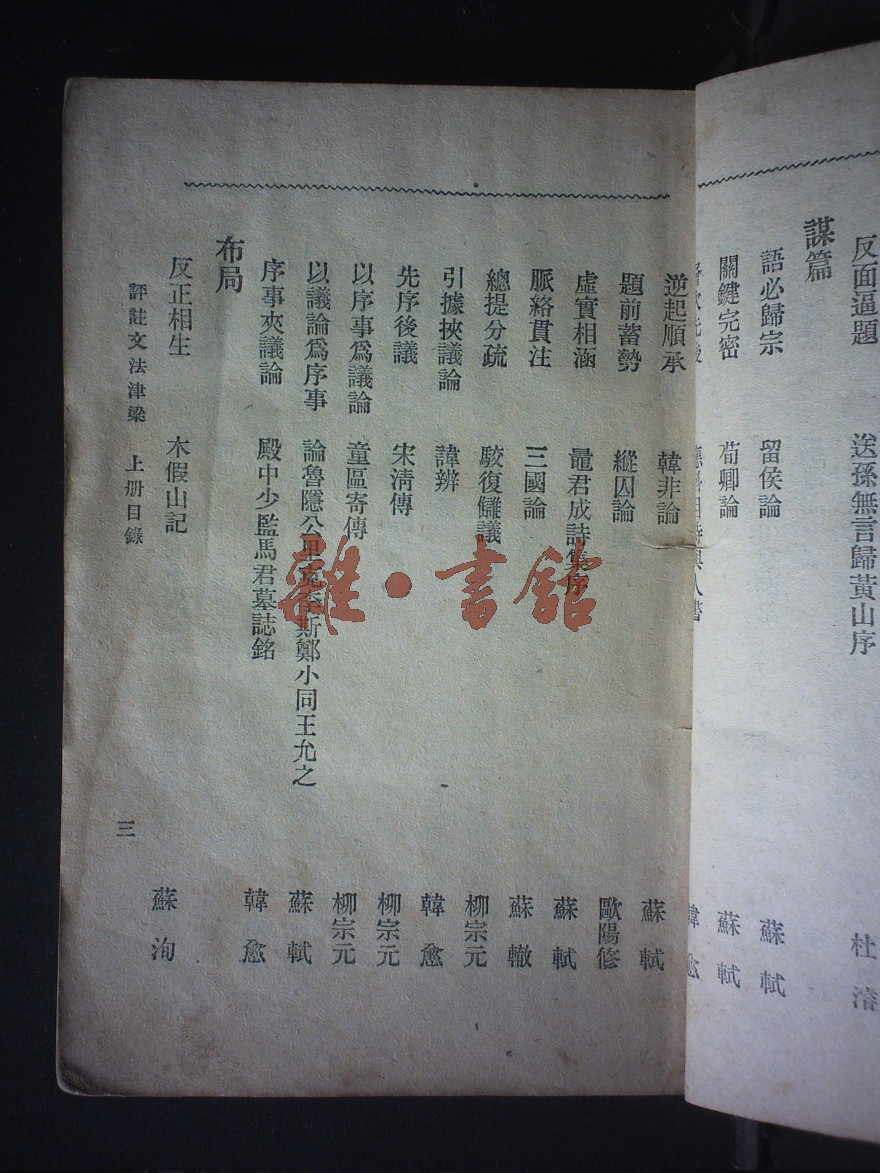 反面逼題 送孫無言歸黃山序 杜濬
謀篇
語必歸宗 留侯論 蘇軾
關鍵完密 荀卿論 蘇軾
韓愈
逆起順承 韓非論 蘇軾
題前蓄勢 縱囚論 歐陽修
虛實相涵 鼂君成詩集序 蘇軾
脈絡貫注 三國論 蘇轍
總提分疏 駁復讎議 柳宗元
引據挾議論 諱辨 韓愈
先序後議 宋淸傳 柳宗元
以序事爲議論 童區寄傳 柳宗元
以議論爲序事 論魯隱公里克李斯鄭小同王允之 蘇軾
序事夾議論 殿中少監馬君墓誌銘 韓愈
布局
反正相生 木假山記 蘇洵
評註文法津梁 上册目錄 三
雜·書館